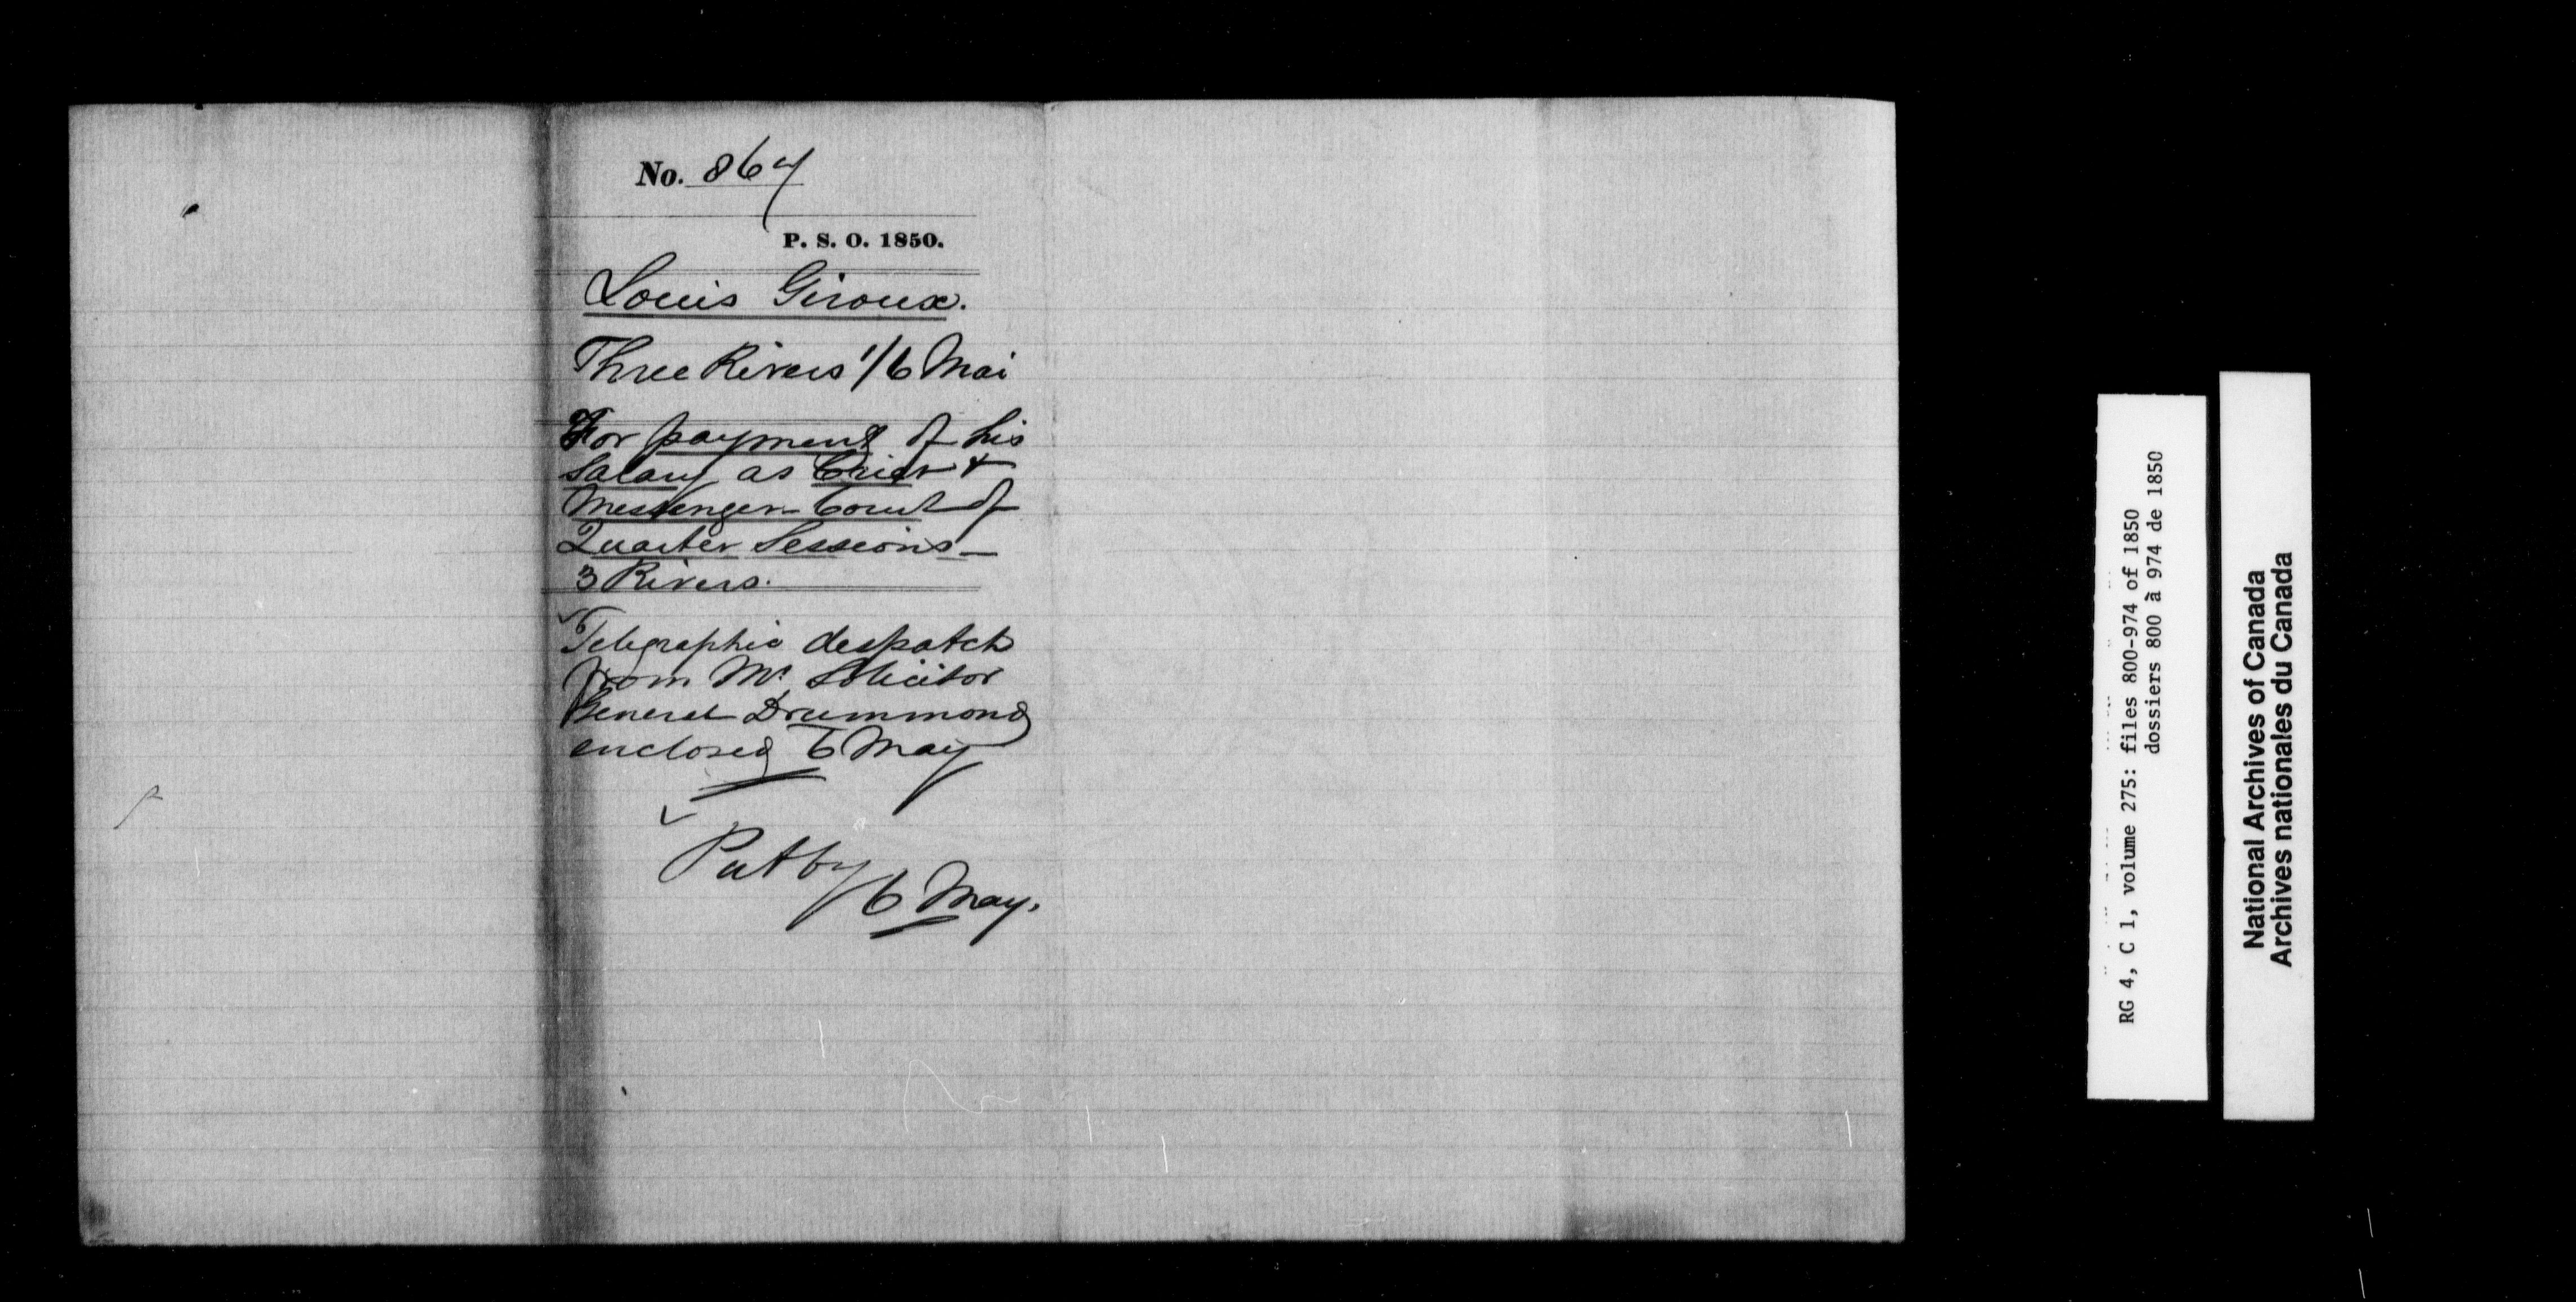 No. 867
P. S. O. 1850.
Louis Giroux.
Three Rivers 1/6 Mai
For payment of his
Salary as Crier &
Messenger Court of
Quarter Sessions
3 Rivers.
Telegraphic despatch
from Mr Solicitor
General Drummond
enclosed 6 May
Put by 6 May.
RG 4, C 1, volume 275: files 800-974 of 1850
dossiers 800 à 974 de 1850
National Archives of Canada
Archives nationales du Canada